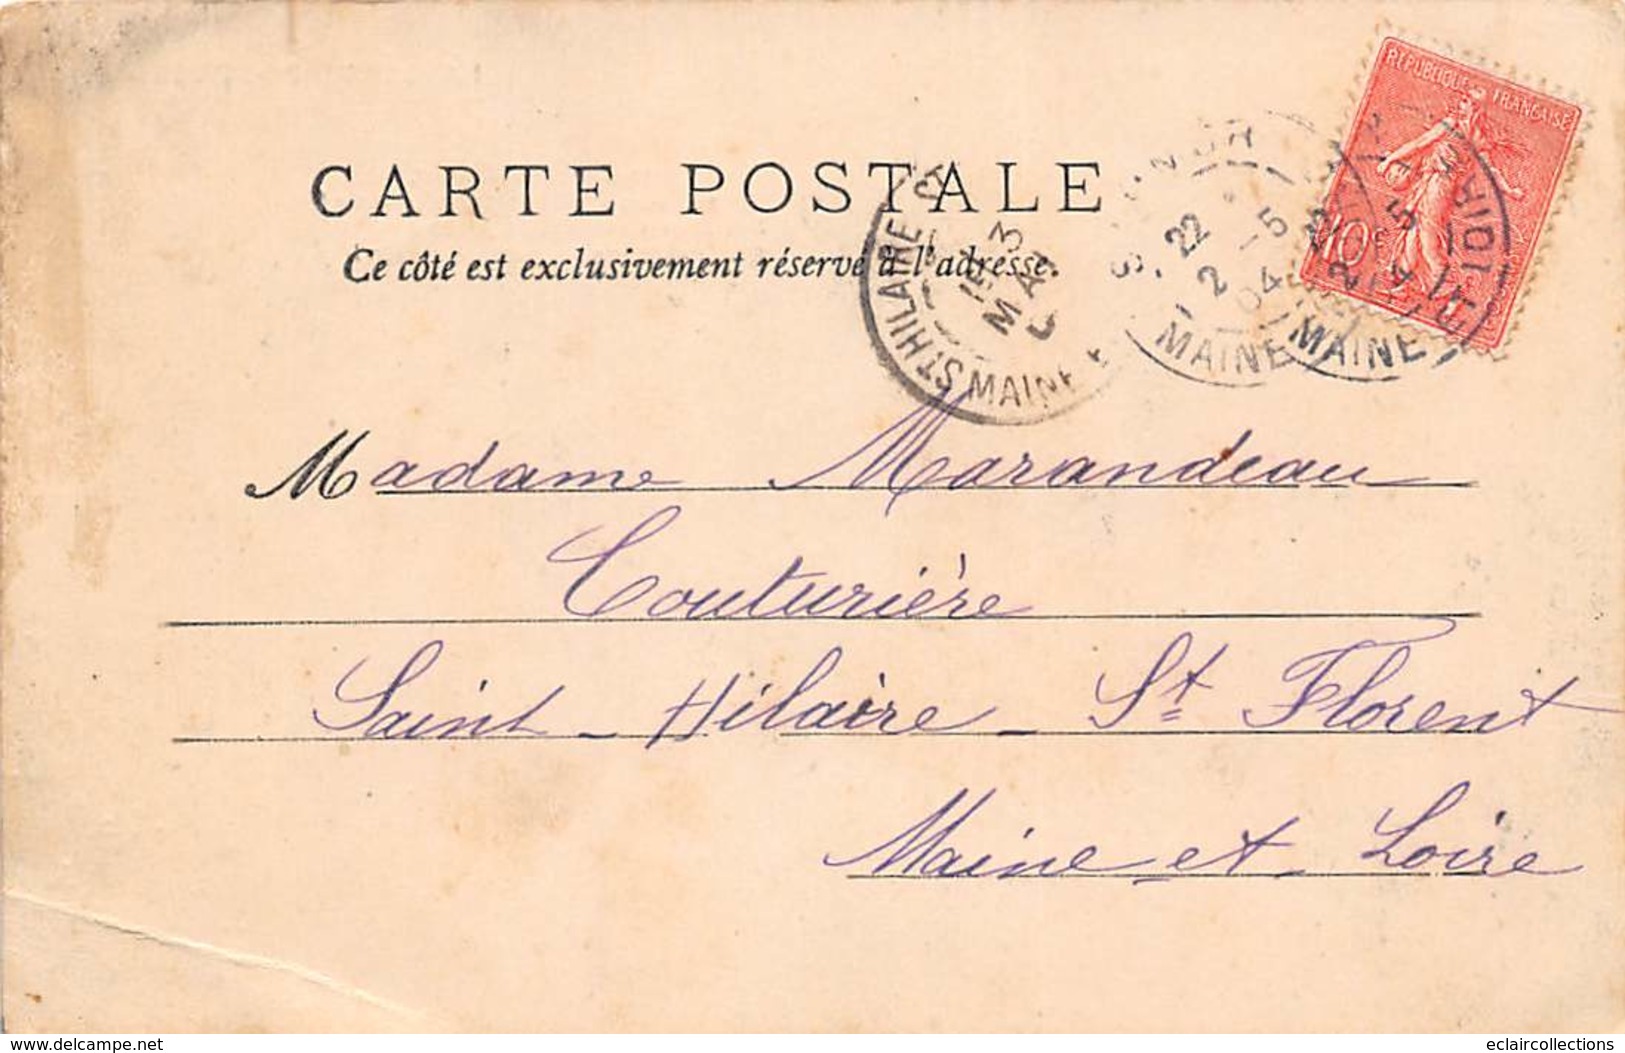 RÉPUBLIQUE FRANÇAISE
10
CARTE POSTALE
Ce côté est exclusivement réservé à l'adresse.
ST HILAIRE ST
MAINE
22
2 -5
04
MAINE
MAINE
Madame Marandeau
Couturière
Saint-Hilaire-St Florent
Maine et Loire
www.delcampe.net
eclaircollections